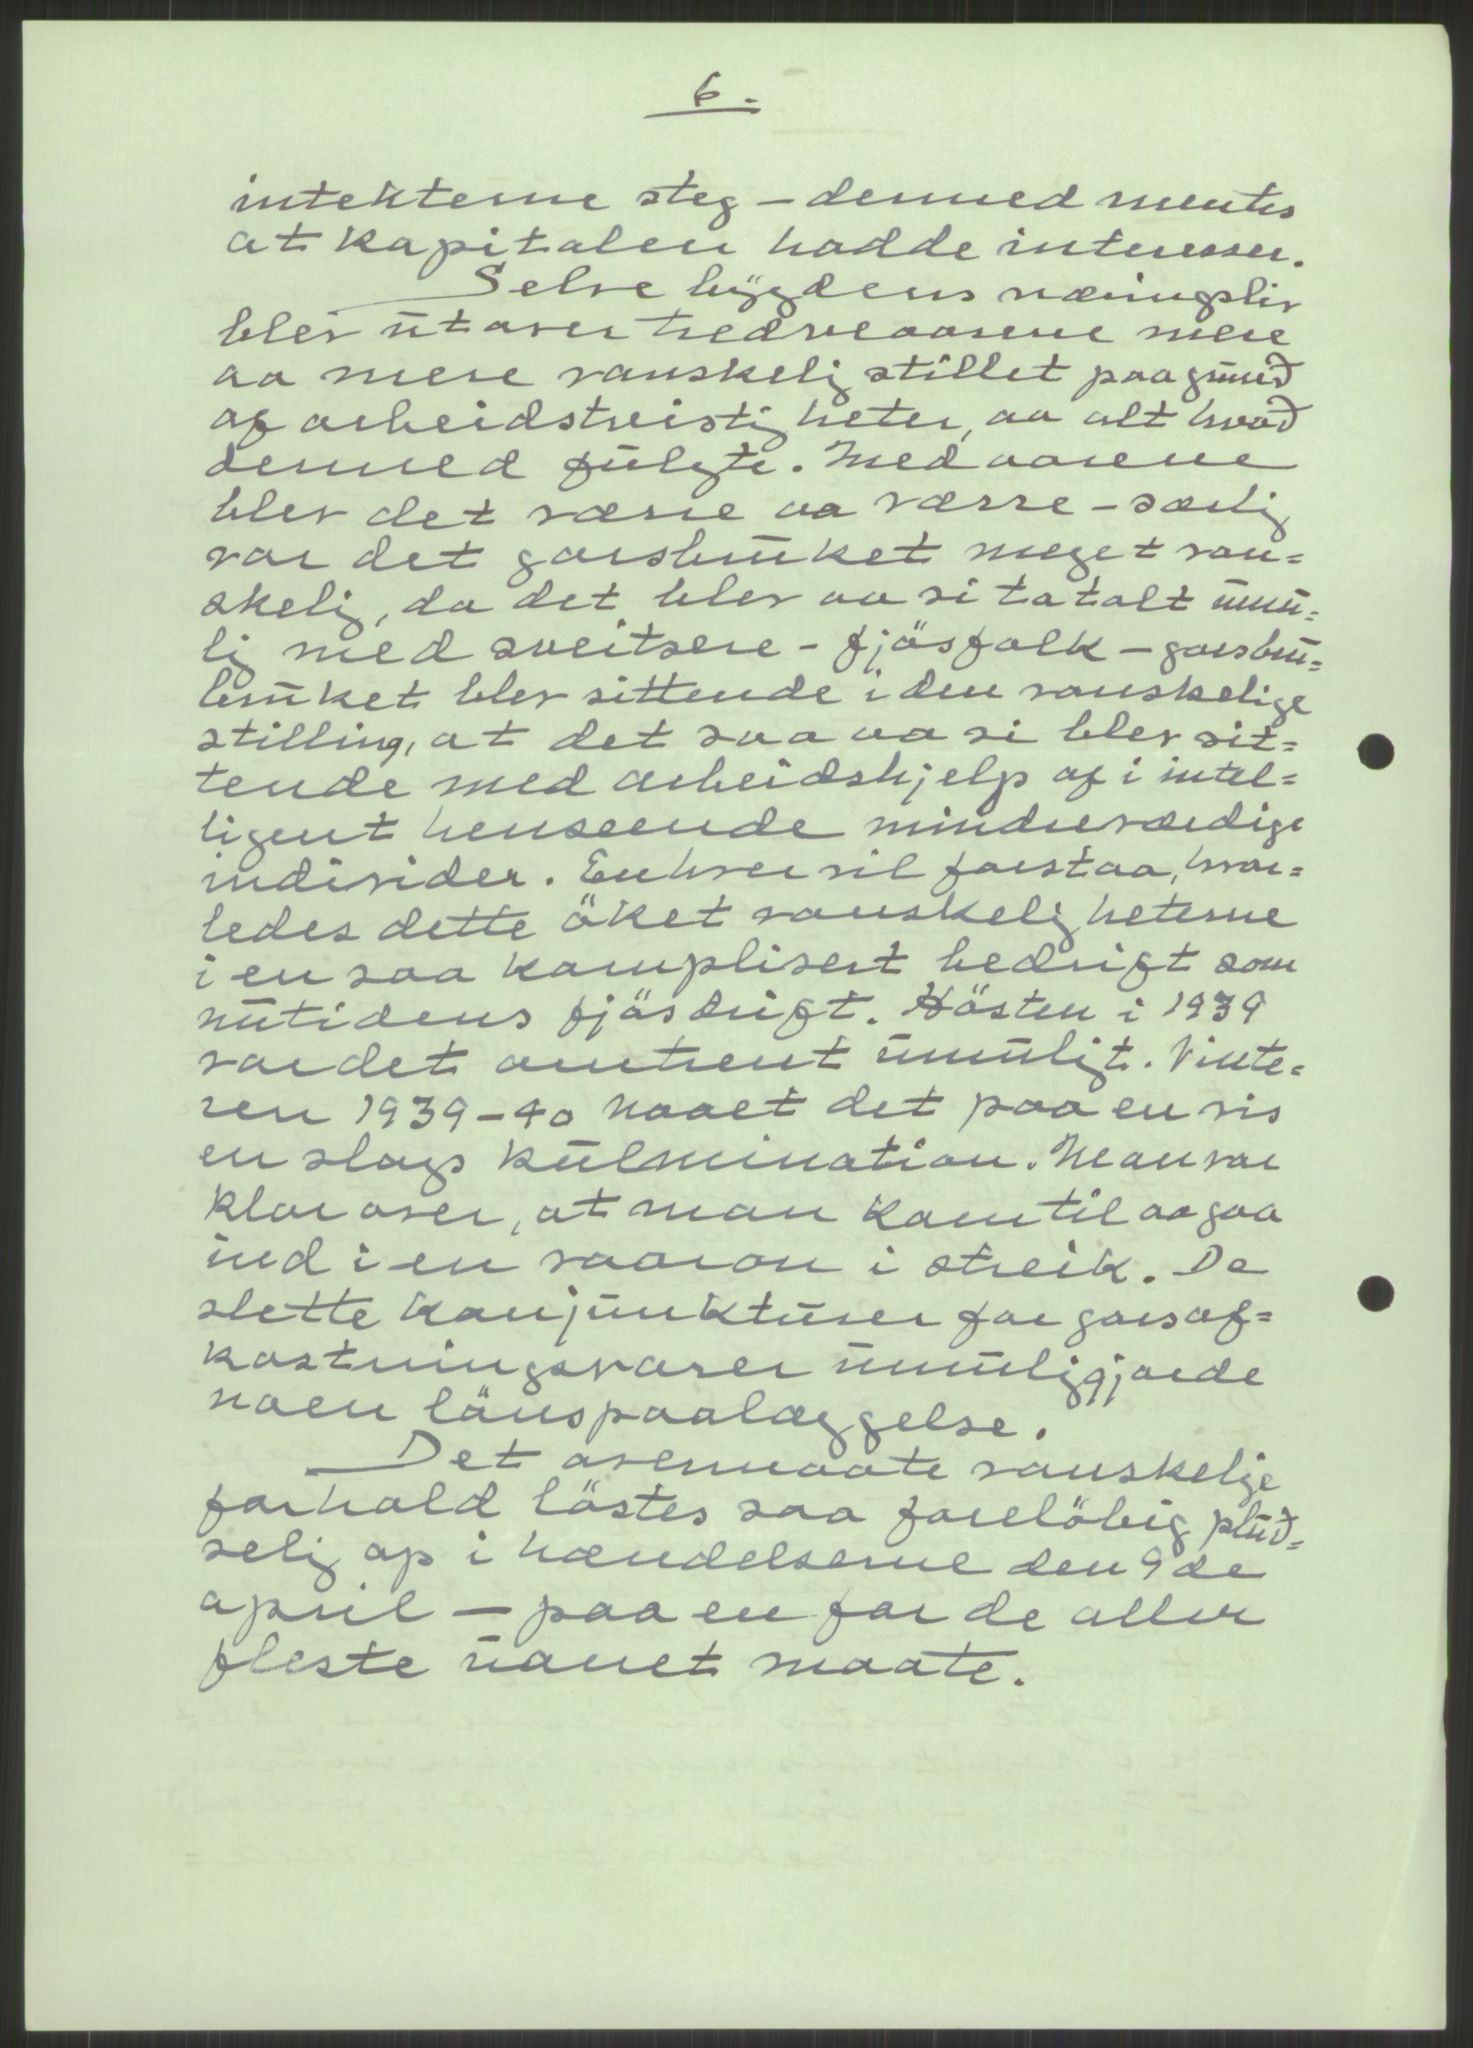 6.
intekterne steg – dermed mentes
at kapitalen hadde interesser.
Selve bygdens næringsliv
blev utover tredveaarene mere
aa mere vanskelig stillet paa grund
af arbeidstvistigheter, aa alt hvad
dermed fulgte. Med aarene
blev det værre aa værre – særlig
var det gorsbruket meget van=
skelig, da det blev aa si totalt umu=
lig med sveitsere – fjösfolk – gorsbru=
bruket blev sittende i den vanskelige
stilling, at det saa aa si blev sit=
tende med arbeidshjelp af i intel=
ligent henseende mindreværdige
individer. Enhver vil forstaa, hvor=
ledes dette öket vanskeligheterne
i en saa komplisert bedrift som
nutidens fjösdrift. Hösten i 1939
var det omtrent umuligt. Vinte=
ren 1939–40 naaet det paa en vis
en slags kulmination. Man var
klar over, at man kom til aa gaa
ind i en vaaron i streik. De
slette konjunkturer for gorsaf=
kastningsvarer umuliggjorde
noen lönspaalæggelse.
Det overmaate vanskelige
forhold löstes saa forelöbig plud=
selig op i hændelserne den 9de
april – paa en for de aller
fleste uanet maate.